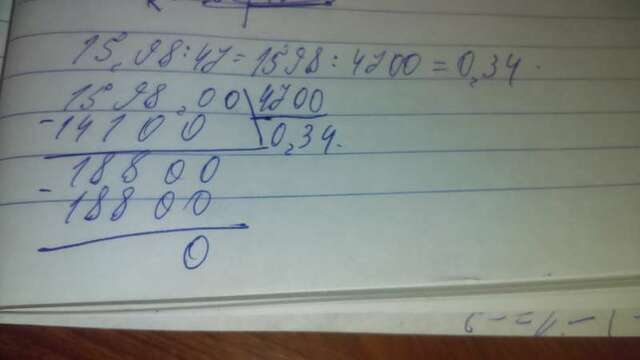 15,98:47=1598:4700=0,34.
1598,00 4700
-14100 0,34.
18800
-18800
0